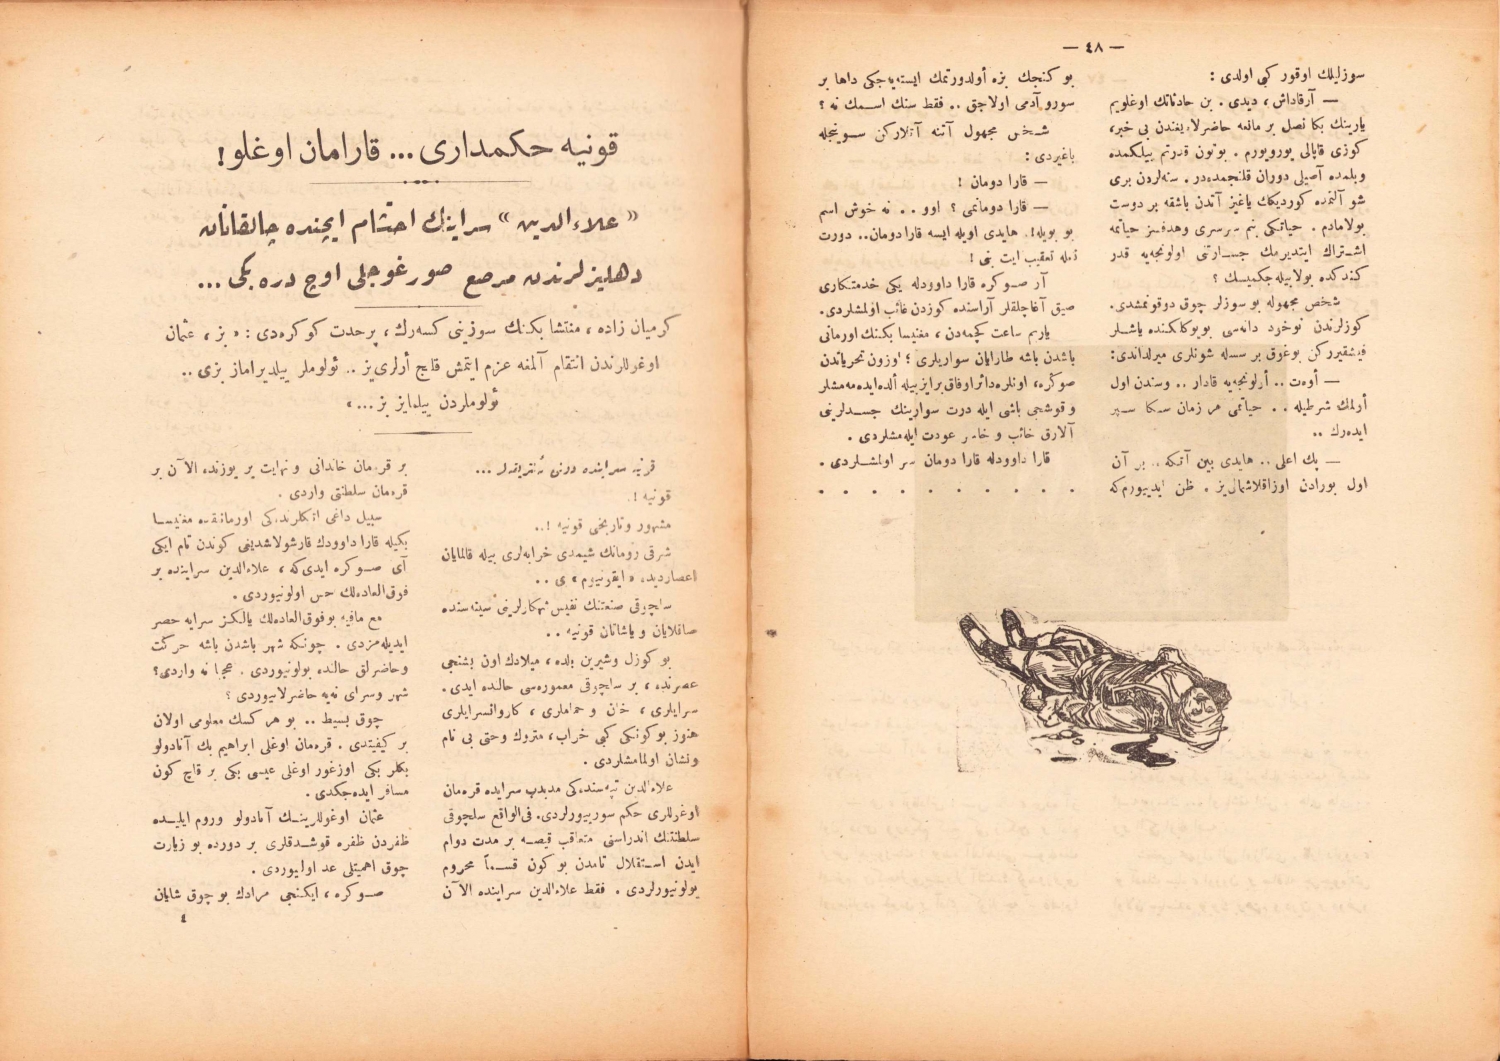 — ٤٨ —
سوزلیلك اوقور كبی اولدی :
— آرقاداش، دیدی . بن حادثاتك اوغلویم
یارینك بكا نصل بر مانعه حاضرلایغندن بی خبر،
كوزی قاپالی یورویورم . بوتون قدرتم بیلكمده
وبلمده آصیلی دوران قلنجمده‌در . سنه‌لردن بری
شو آلتمده كوردیكك یاغیز آتدن باشقه بر دوست
بولامادم . حیاتكی بنم سرسری وهدفسز حیاتمه
اشتراك ایتدیرمك جسارتنی اولونجه‌یه قدر
كندكده بولابیله‌جكمیسك ؟
شخص مجهوله بو سوزلر چوق دوقونمشدی.
كوزلرندن نوخود دانه‌سی بویوكلكنده یاشلر
فیشقیررکن بوغوق بر سسله شونلری میرلداندی:
— أوه‌ت .. أولونجه‌یه قادار .. وسندن اول
أولمك شرطیله . . حیاتمی هر زمان سكا سپر
ایده‌رك ..
— پك اعلی .. هایدی بین آتكه .. بر آن
اول بورادن اوزاقلاشمالی‌یز . ظن ایدییورم‌كه
بو كنجك بزه أولدورتمك ایسته‌یه‌جكی داها بر
سورو آدمی اولاجق .. فقط سنك اسمك نه ؟
شخص مجهول آتنه آتلاركن سوینجله
باغیردی :
— قارا دومان !
— قارا دومانمی ؟ اوو . . نه خوش اسم
بو بویله!. هایدی اویله ایسه قارا دومان.. دورت
نعله تعقیب ایت بنی !
آز صوكره قارا داوودله یكی خدمتكاری
صیق آغاچلقلر آراسنده كوزدن غائب اولمشلردی.
یارم ساعت كچمه‌دن ، مغنیسا بكنك اورمانی
باشدن باشه طارایان سواریلری ؛ اوزون تحریاتدن
صوكره، اونلره دائر اوفاق بر ایز بیله ألده ایده‌مه‌مشلر
وقوشجی باشی ایله درت سوارینك جسدلرینی
آلارق خائب و خاسر عودت ایله‌مشلردی .
قارا داوودله قارا دومان سر اولمشلردی .
. . . . . . . . . . .
قونیه حكمداری ... قارامان اوغلو !
« علاءالدین » سراینك احتشام ایچنده چالقانان
دهلیزلرندن مرصع صورغوجلی اوچ دره بكی ...
كرمیان زاده ، منتشا بكنك سوزینی كسه‌رك ، پرحدت كوكره‌دی : « بز ، عثمان
اوغوللرندن انتقام آلمغه عزم ایتمش قلیج أرلری‌یز .. ئولوملر ییلدیراماز بزی ..
ئولوملردن ییلمایز بز ... »
قونیه سراینده ... ...
قونیه !.
مشهور وتاریخی قونیه !..
شرقی رومانك شیمدی خرابه‌لری بیله قالمایان
اعصاردیده « ایقونیوم » ی ..
سلچوقی صنعتنك نفیس شهكارلرینی سینه‌سنده
صاقلایان و یاشاتان قونیه . .
بو كوزل وشیرین بلده ، میلادك اون بشنجی
عصرنده ، بر سلچوقی معموره‌سی حالنده ایدی.
سرایلری ، خان و حماملری ، كاروانسرایلری
هنوز بوكونكی كبی خراب، متروك وحتی بی نام
ونشان اولمامشلردی .
علاءالدین تپه‌سنده‌كی مدبدب سرایده قره‌مان
اوغوللری حكم سورییورلردی. فی‌الواقع سلچوقی
سلطنتك اندراسنی متعاقب قیصه بر مدت دوام
ایدن استقلال تامدن بو كون قسماً محروم
بولونیورلردی . فقط علاءالدین سراینده الآن
بر قره‌مان خاندانی و نهایت بر یوزنده الآن بر
قره‌مان سلطنتی واردی .
سپیل داغی اتكلرنده‌كی اورمانده مغنیسا
بكیله قارا داوودك قارشولاشدینی كوندن تام ایكی
آی صوكره ایدی‌كه ، علاءالدین سراینده بر
فوق‌العاده‌لك حس اولونیوردی .
مع مافیه بو فوق‌العاده‌لك یالكز سرایه حصر
ایدیله‌مزدی . چونكه شهر باشدن باشه حركت
وحاضرلق حالنده بولونیوردی . عجبا نه واردی؟
شهر وسرای نه‌یه حاضرلانیوردی ؟
چوق بسیط .. بو هر كسك معلومی اولان
بر كیفیتدی . قره‌مان اوغلی ابراهیم بك آنادولو
بكلر بكی اوزغور اوغلی عیسی بكی بر قاچ كون
مسافر ایده‌جكدی .
عثمان اوغوللرینك آنادولو وروم ایلیده
ظفردن ظفره قوشدقلری بر دورده بو زیارت
چوق اهمیتلی عد اولیوردی .
صوكره ، ایكنجی مرادك بو چوق شایان
٤